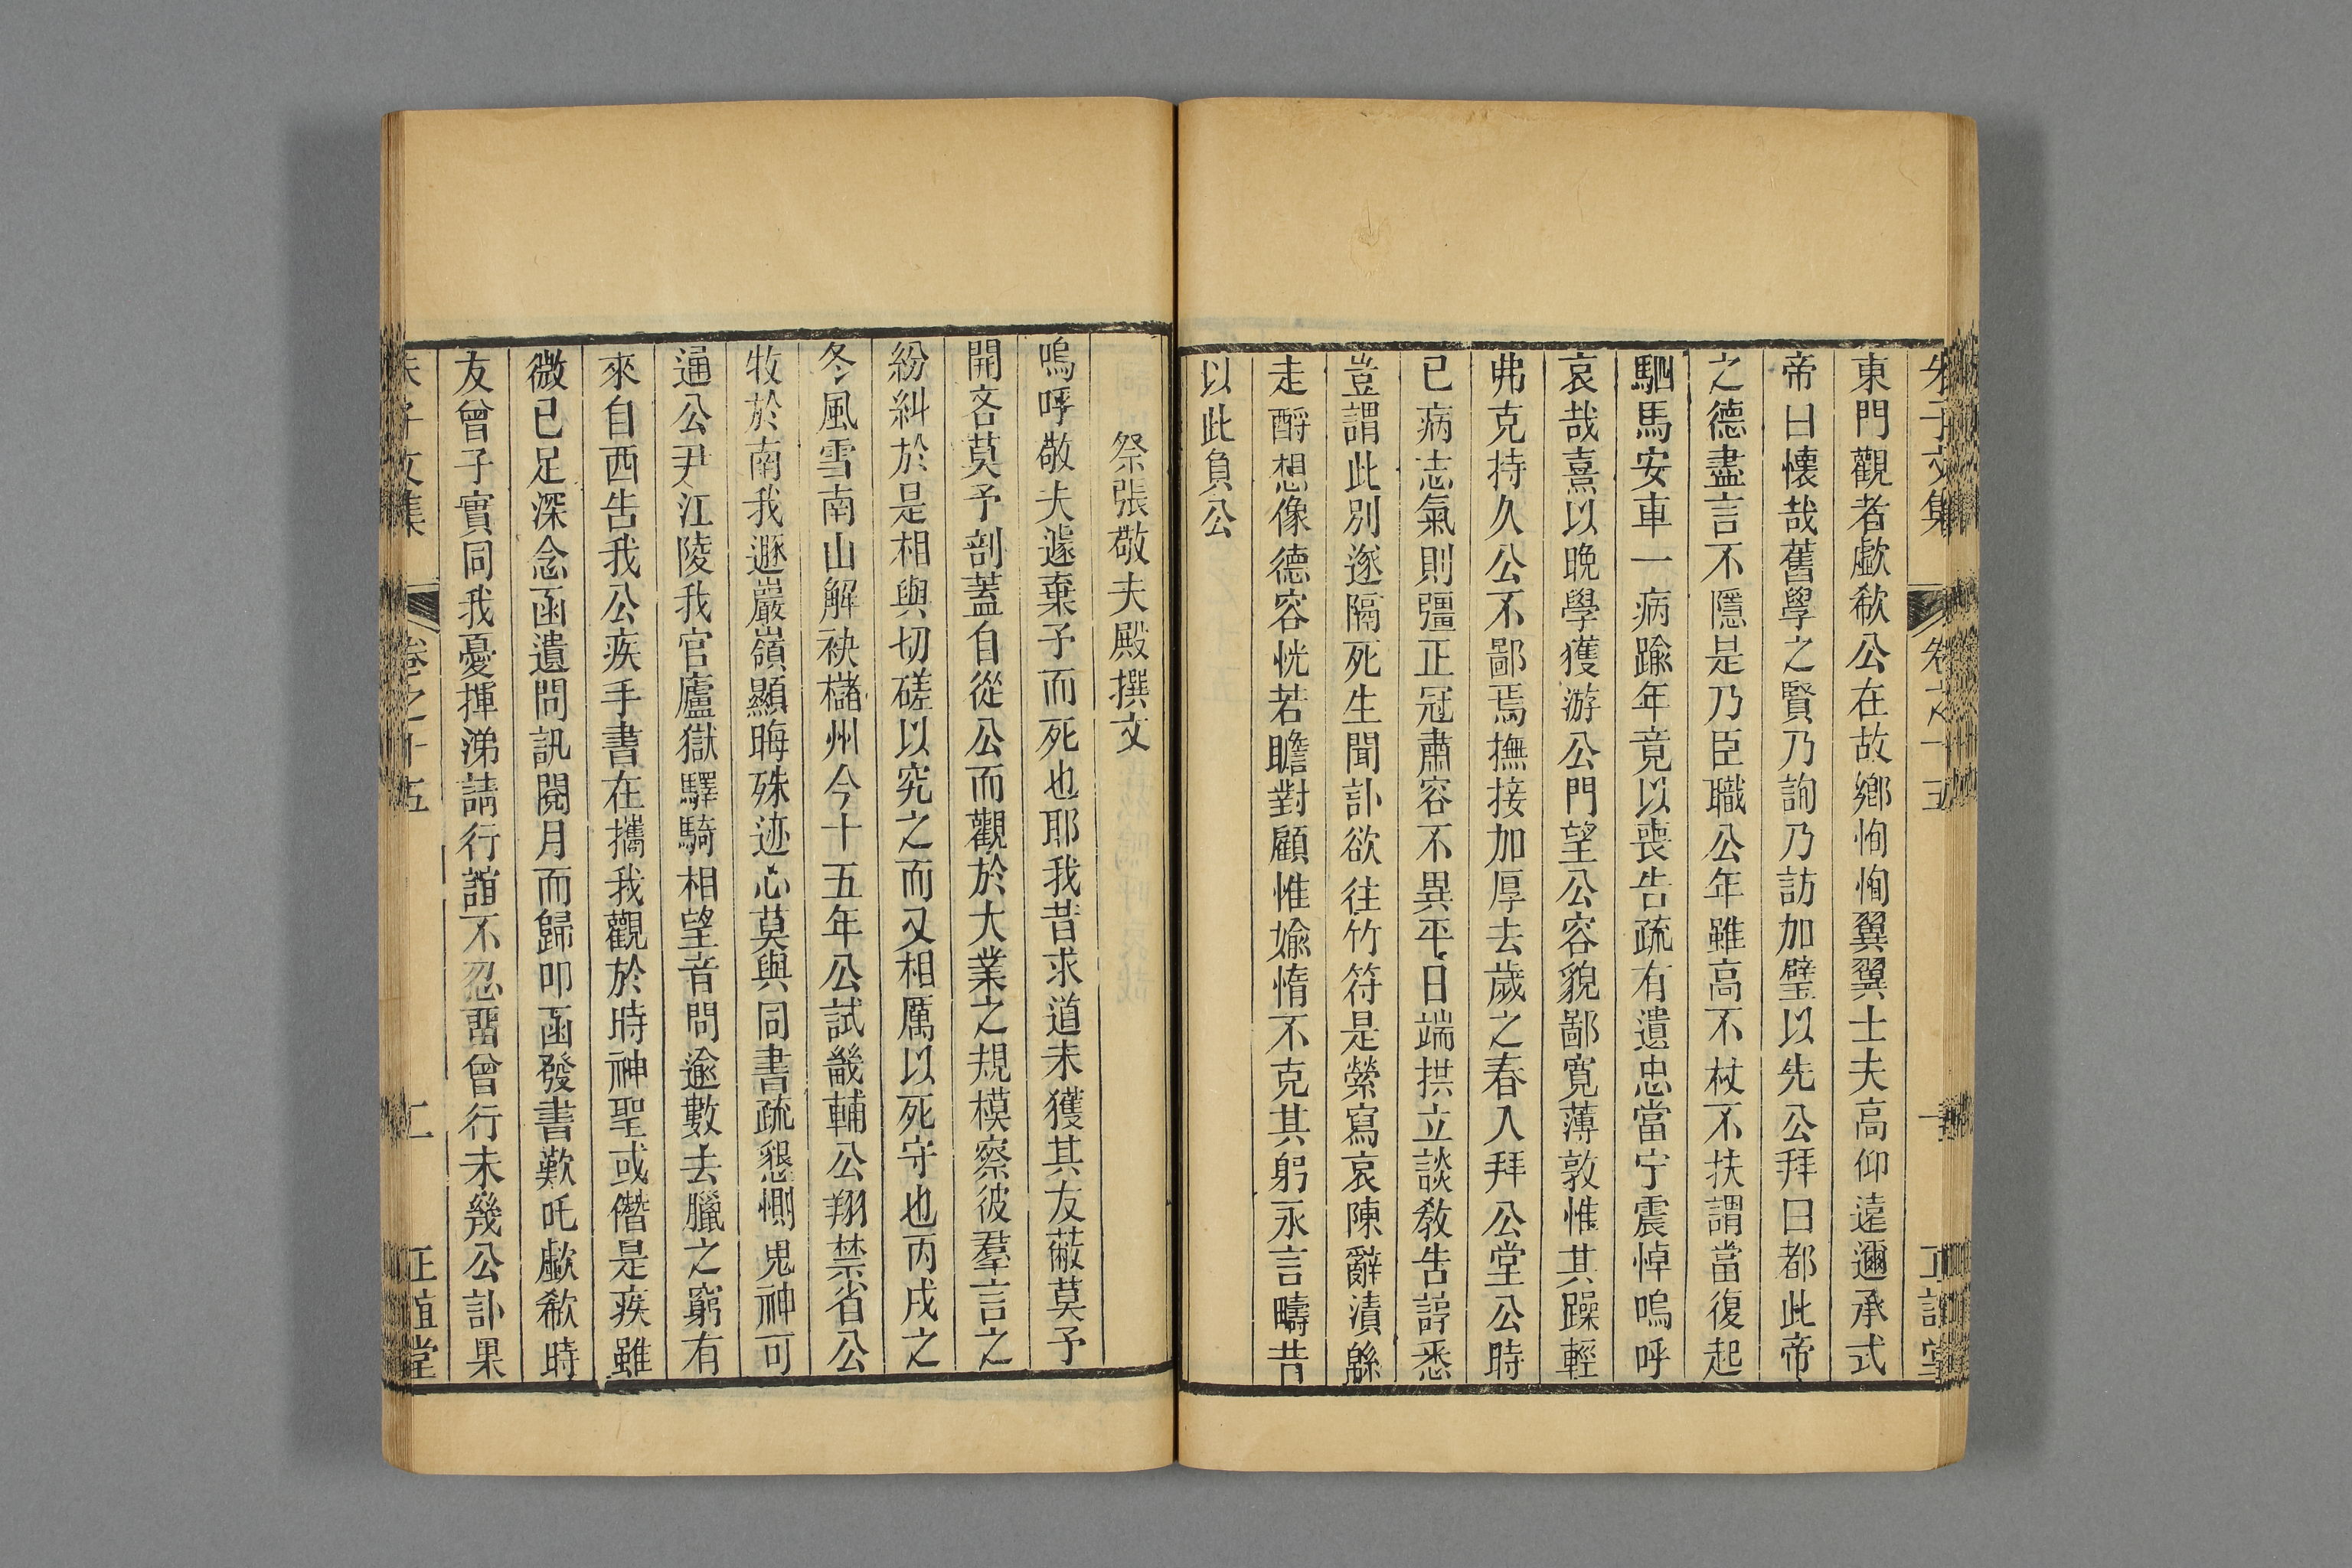 朱子文集 卷之十五 一 正誼堂
東門觀者歔欷公在故鄉恂恂翼翼士夫高仰遠邇承式
帝曰懷哉舊學之賢乃詢乃訪加璧以先公拜曰都此帝
之德盡言不隱是乃臣職公年雖高不杖不扶謂當復起
駟馬安車一病踰年竟以喪告疏有遺忠當宁震悼嗚呼
哀哉熹以晚學獲游公門望公容貌鄙寬薄敦惟其躁輕
弗克持久公不鄙焉撫接加厚去歲之春入拜公堂公時
已病志氣則彊正冠肅容不異平日端拱立談教告諄悉
豈謂此別遂隔死生聞訃欲往竹符是縈寫哀陳辭漬緜
走酹想像德容恍若瞻對顧惟媮惰不克其躬永言疇昔
以此負公
祭張敬夫殿撰文
嗚呼敬夫遽棄予而死也耶我昔求道未獲其友蔽莫予
開吝莫予剖蓋自從公而觀於大業之規模察彼羣言之
紛糾於是相與切磋以究之而又相厲以死守也丙戌之
冬風雪南山解袂櫧州今十五年公試畿輔公翔禁省公
牧於南我遯巖嶺顯晦殊迹心莫與同書疏懇惻鬼神可
通公尹江陵我官廬嶽驛騎相望音問逾數去臘之窮有
來自西告我公疾手書在攜我觀於時神聖或僭是疾雖
微已足深念函遺問訊閱月而歸叩函發書歎吒歔欷時
友曾子實同我憂揮涕請行誼不忍畱曾行未幾公訃果
朱子文集 卷之十五 二 正誼堂